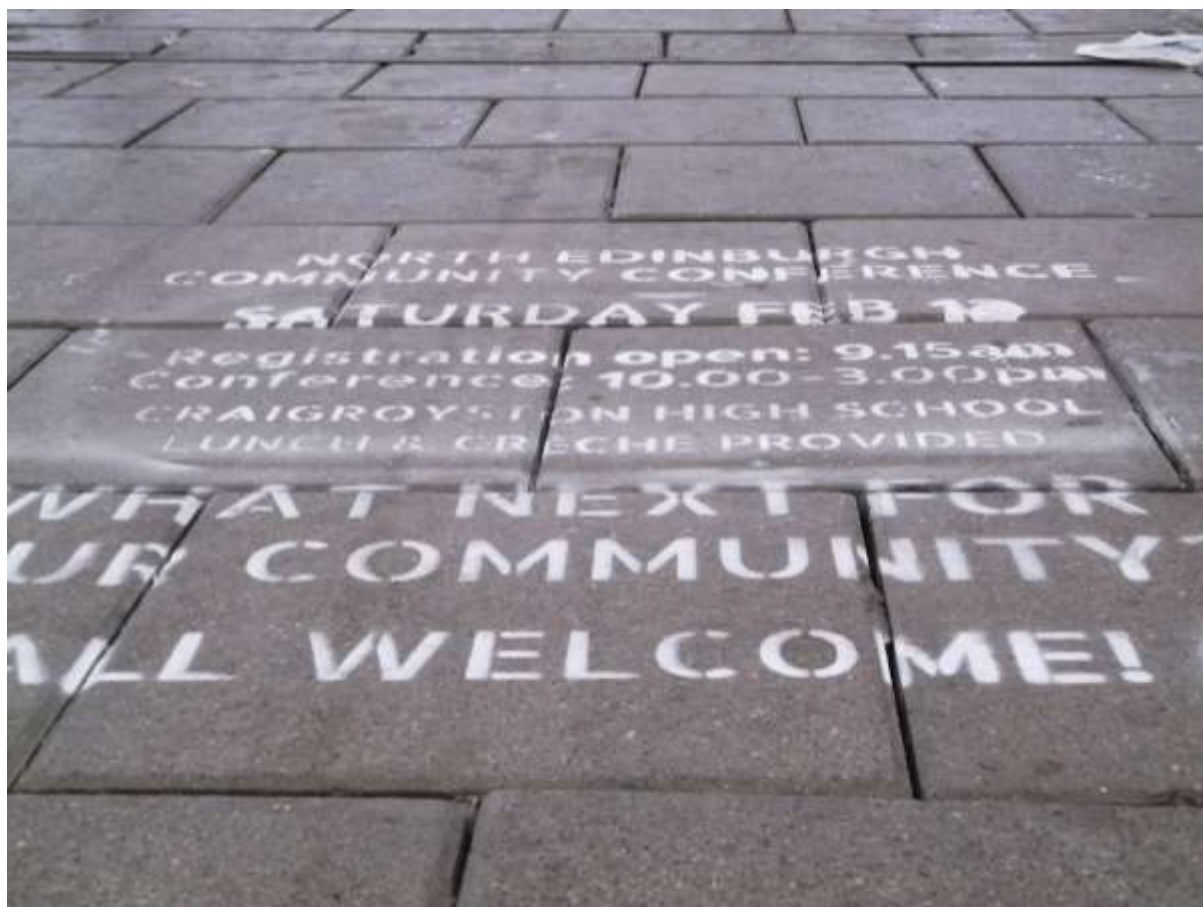 NORTH EDINBURGH
COMMUNITY CONFERENCE
SATURDAY FEB
Registration open: 9.15am
Conference: 10.00-3.00pm
CRAIGROYSTON HIGH SCHOOL
LUNCH & CRECHE PROVIDED
WHAT NEXT FOR
UR COMMUNITY?
ALL WELCOME!